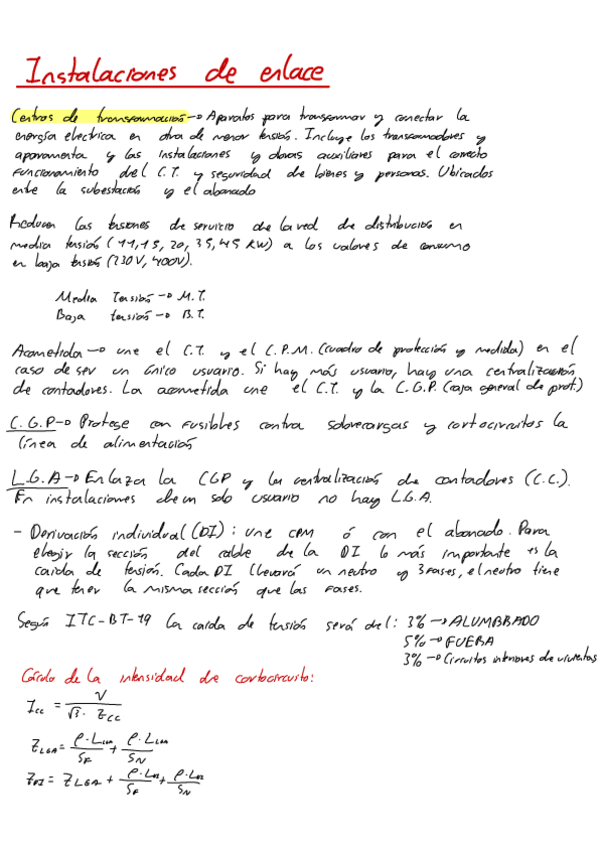 Instalaciones de enlace
Centros de transformación → Aparatos para transformar y conectar la
energía electrica en otra de menor tensión. Incluye los transformadores y
aparamenta y las instalaciones y obras auxiliares para el correcto
funcionamiento del C.T. y seguridad de bienes y personas. Ubicados
entre la subestación y el abonado
Reducen las tensiones de servicio de la red de distribución en
media tensión (11, 15, 20, 35, 45 KW) a los valores de consumo
en baja tensión (230V, 400V).
Media Tensión → M.T.
Baja tensión → B.T.
Acometida → une el C.T. y el C.P.M. (cuadro de protección y medida) en el
caso de ser un único usuario. Si hay más usuario, hay una centralización
de contadores. La acometida une el C.T. y la C.G.P. (caja general de prot.)
C.G.P → Protege con fusibles contra sobrecargas y cortocircuitos la
línea de alimentación
L.G.A → Enlaza la CGP y la centralización de contadores (C.C.).
En instalaciones de un solo usuario no hay L.G.A.
- Derivación individual (DI): une CPM ó con el abonado. Para
elegir la sección del cable de la DI lo más importante es la
caída de tensión. Cada DI llevará un neutro y 3 fases, el neutro tiene
que tener la misma sección que las fases.
Según ITC-BT-19 la caida de tensión será del: 3% → ALUMBRADO
5% → FUERA
3% → Circuitos interiores de viviendas
Cálculo de la intensidad de cortocircuito:
Icc = V / √3 · Zcc
Z_LGA = ρ·L_LGA / S_F + ρ·L_LGA / S_N
Z_DI = Z_LGA + ρ·L_DI / S_F + ρ·L_DI / S_N